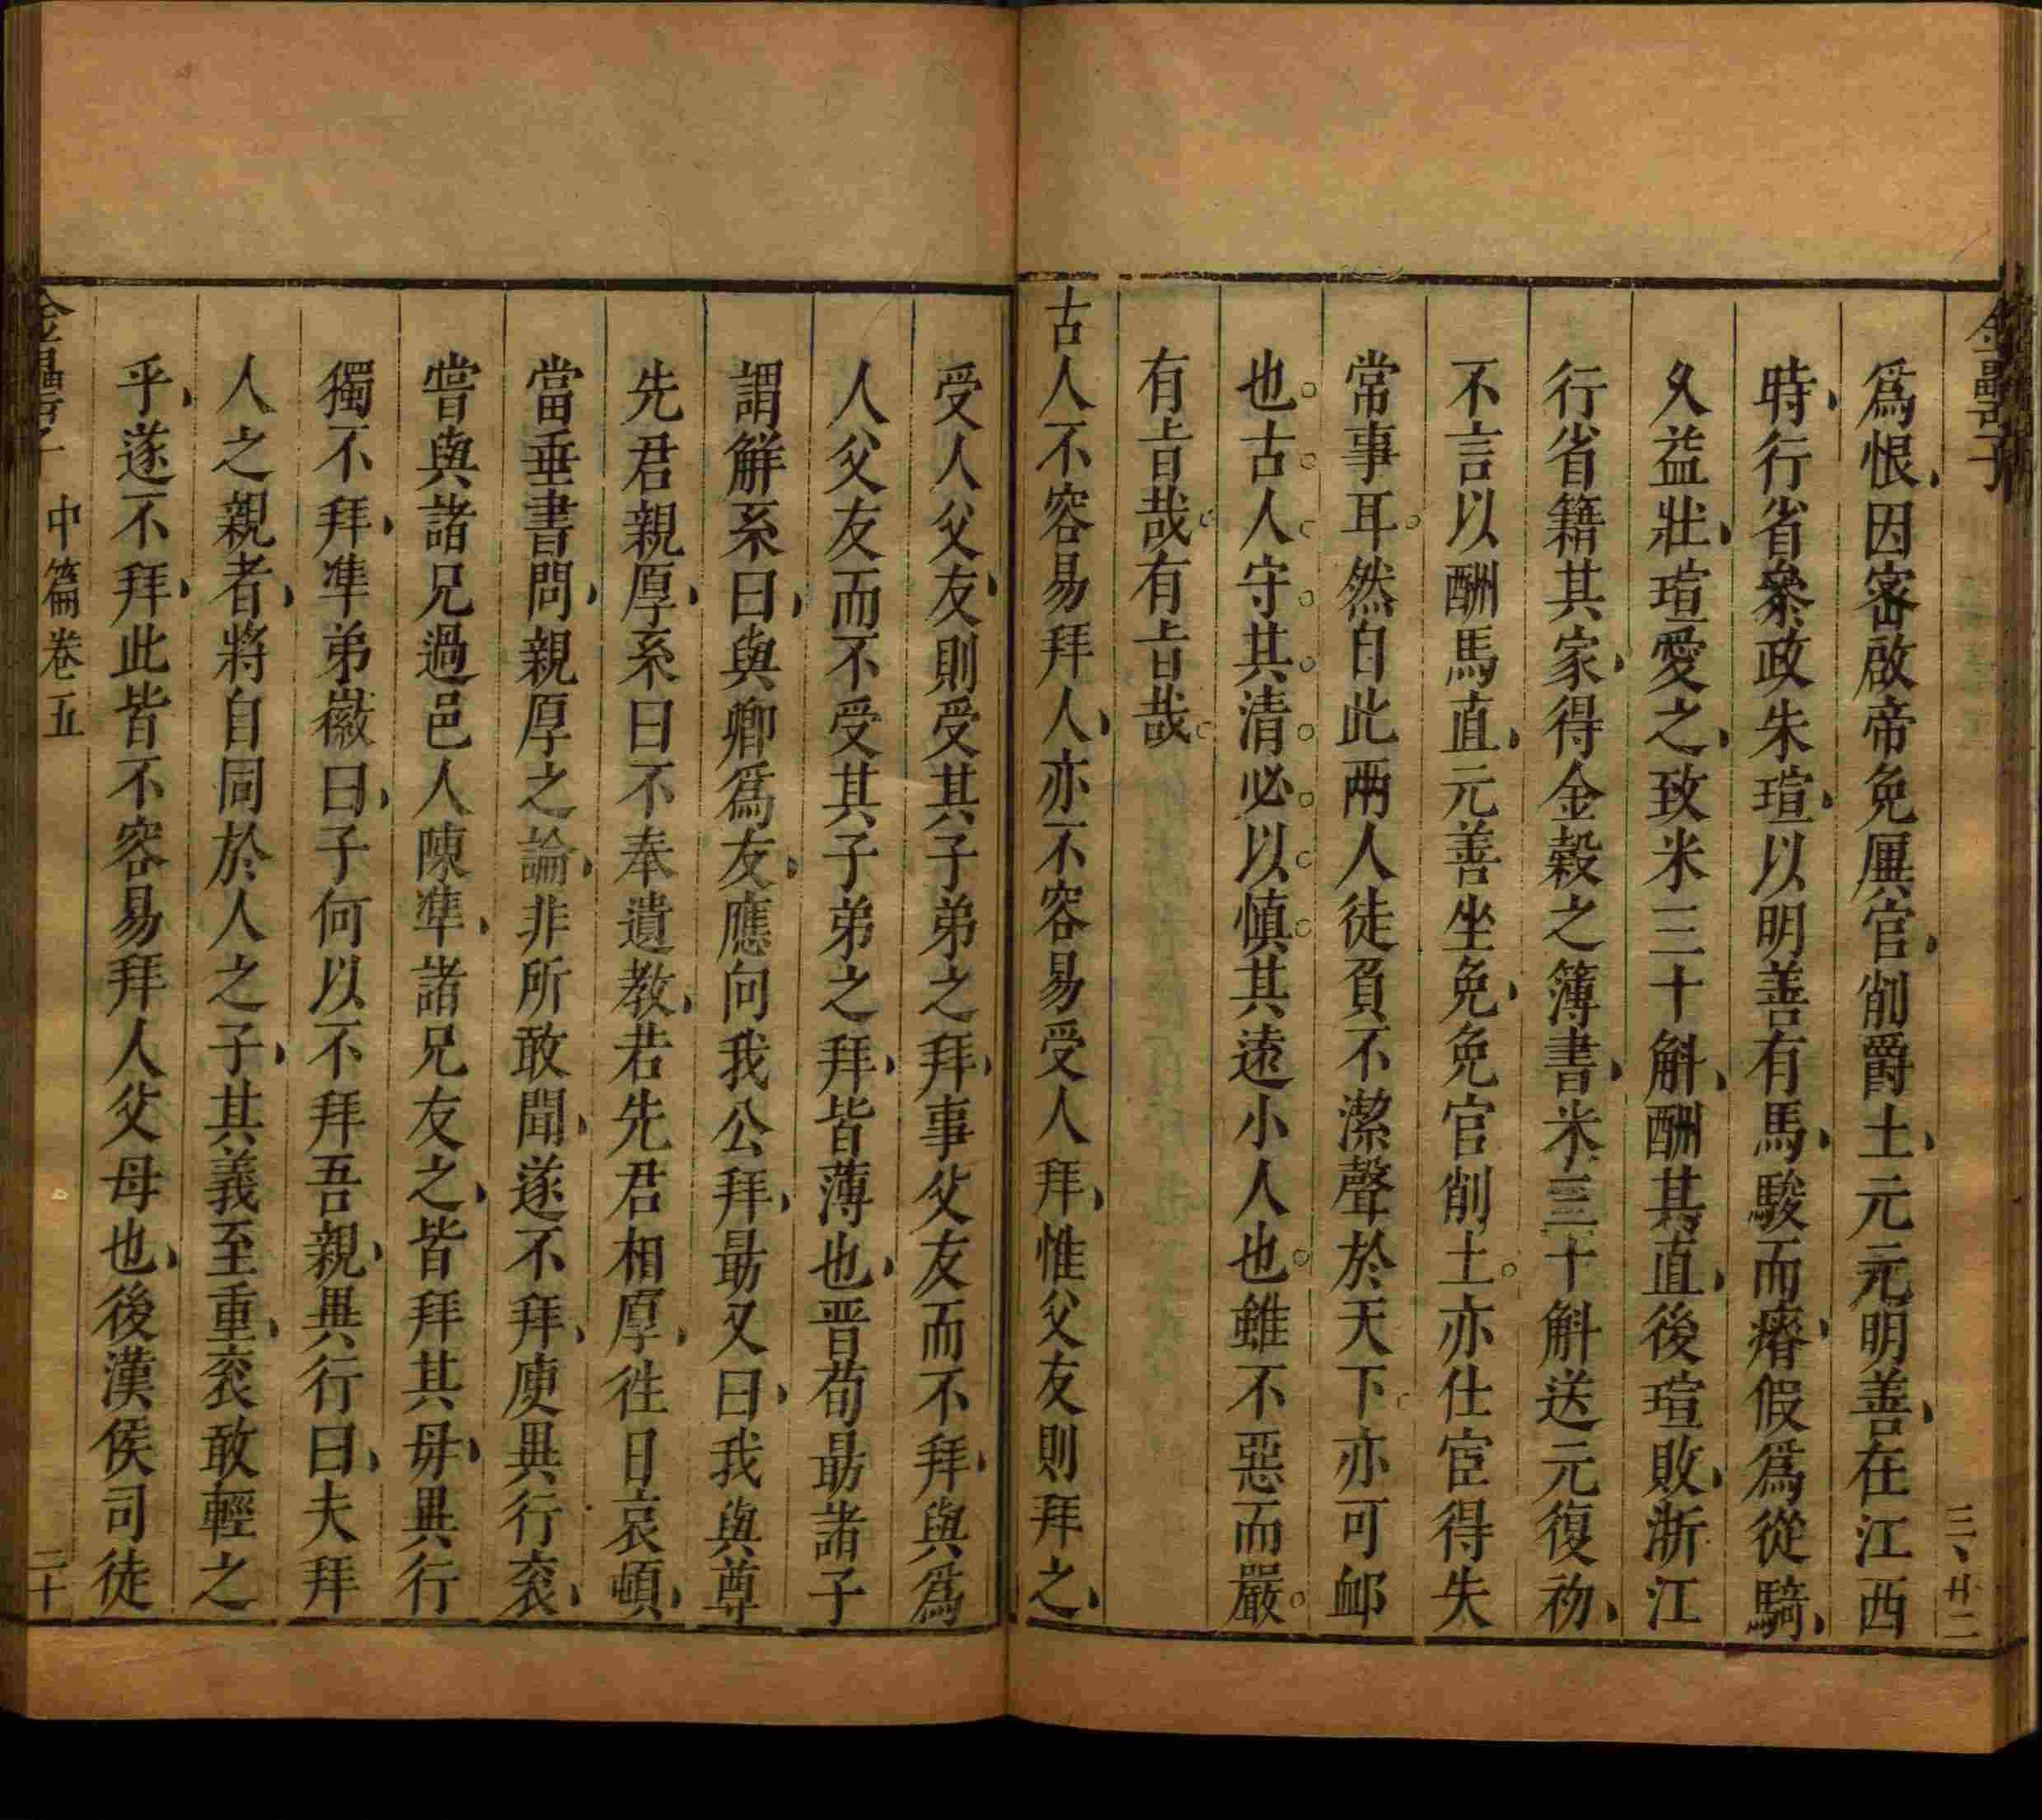 金罍子
三、廿二
爲恨因密啟帝免厲官削爵土元元明善在江西
時行省叅政朱瑄以明善有馬駿而瘠假爲從騎
久益壯瑄愛之致米三十斛酬其直後瑄敗浙江
行省籍其家得金榖之簿書米三十斛送元復初
不言以酬馬直元善坐免免官削土亦仕宦得失
常事耳然自此兩人徒負不潔聲於天下亦可䘏
也古人守其清必以慎其遠小人也雖不惡而嚴
有旨哉有旨哉
古人不容易拜人亦不容易受人拜惟父友則拜之
受人父友則受其子弟之拜事父友而不拜與爲
人父友而不受其子弟之拜皆薄也晋荀勗諸子
謂解系曰與卿爲友應向我公拜勗又曰我與尊
先君親厚系曰不奉遺教若先君相厚徃日哀頓
當垂書問親厚之論非所敢聞遂不拜庾異行衮
嘗與諸兄過邑人陳凖諸兄友之皆拜其毋異行
獨不拜凖弟徽曰子何以不拜吾親異行曰夫拜
人之親者將自同於人之子其義至重衮敢輕之
乎遂不拜此皆不容易拜人父母也後漢侯司徒
金罍子
中篇卷五
二十